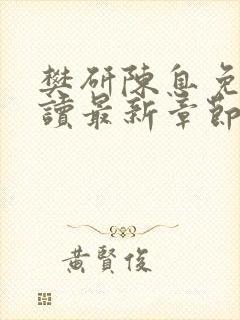 樊砑陳息免
讀最新章節
黃賢俊